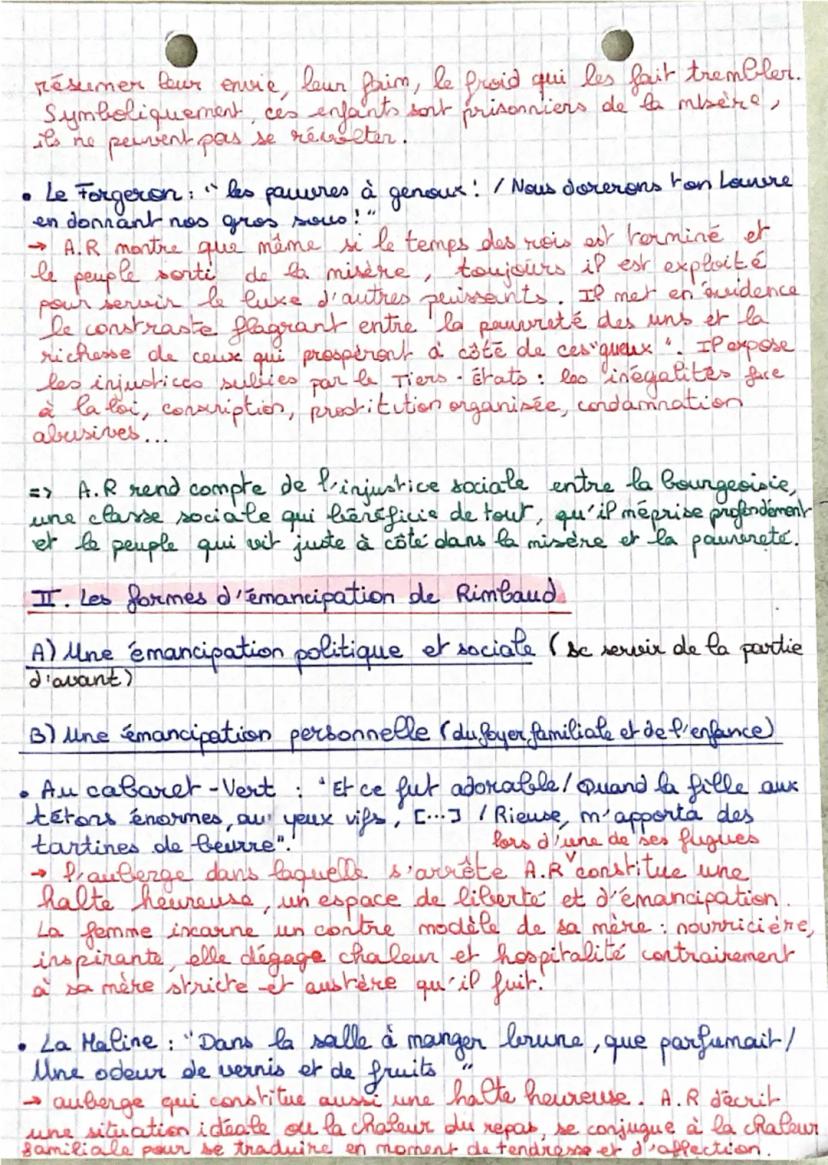 résumer leur envie, leur faim, le froid qui les fait trembler.
Symboliquement, ces enfants sont prisonniers de la misère,
ils ne peuvent pas se révolter.
• Le Forgeron : "les pauvres à genoux ! / Nous dorerons ton Louvre
en donnant nos gros sous !"
→ A.R montre que même si le temps des rois est terminé et
le peuple sorti de la misère, toujours il est exploité
pour servir le luxe d'autres puissants. Il met en évidence
le constraste flagrant entre la pauvreté des uns et la
richesse de ceux qui prospèront à côté de ces "gueux". Il expose
les injustices subies par le Tiers-États : les inégalités face
à la loi, conscription, prostitution organisée, condamnation
abusives...
=> A.R rend compte de l'injustice sociale entre la bourgeoisie,
une classe sociale qui bénéficie de tout, qu'il méprise profondément
et le peuple qui vit juste à côté dans la misère et la pauvreté.
II. Les formes d'émancipation de Rimbaud
A) Une émancipation politique et sociale (se servir de la partie
d'avant)
B) Une émancipation personnelle (du foyer familiale et de l'enfance)
• Au cabaret-Vert : "Et ce fut adorable / Quand la fille aux
tétons énormes, aux yeux vifs, [...] / Rieuse, m'apporta des
tartines de beurre".
lors d'une de ses fugues
→ l'auberge dans laquelle s'arrête A.R constitue une
halte heureuse, un espace de liberté et d'émancipation.
La femme incarne un contre modèle de sa mère : nourricière,
inspirante, elle dégage chaleur et hospitalité contrairement
à sa mère stricte et austère qu'il fuit.
• La Maline : "Dans la salle à manger brune, que parfumait /
Une odeur de vernis et de fruits "
→ auberge qui constitue aussi une halte heureuse. A.R décrit
une situation idéale ou la chaleur du repas, se conjugue à la chaleur
familiale pour se traduire en moment de tendresse et d'affection.